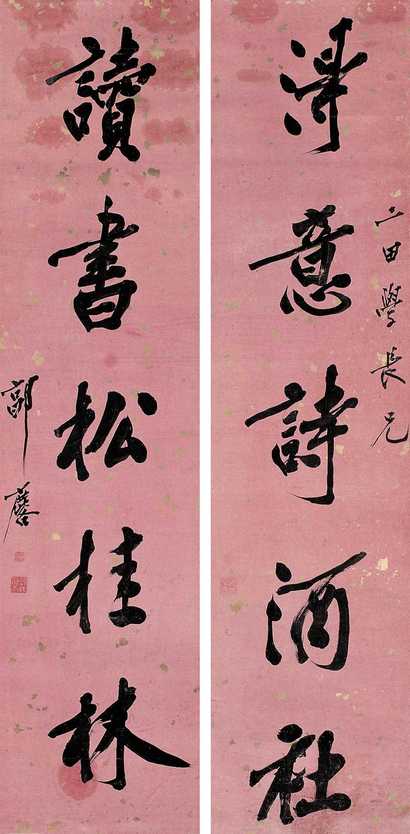 二田學長兄
得意詩酒社
讀書松桂林
郭麐